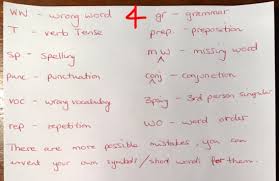 WW - wrong word 4 gr - grammar
T - verb Tense prep. - preposition
sp - spelling mW - missing word
punc - punctuation conj - conjunction
voc - wrong vocabulary 3psing - 3rd person singular
rep - repetition WO - word order
There are more possible mistakes, you can
invent your own symbols / short words for them.